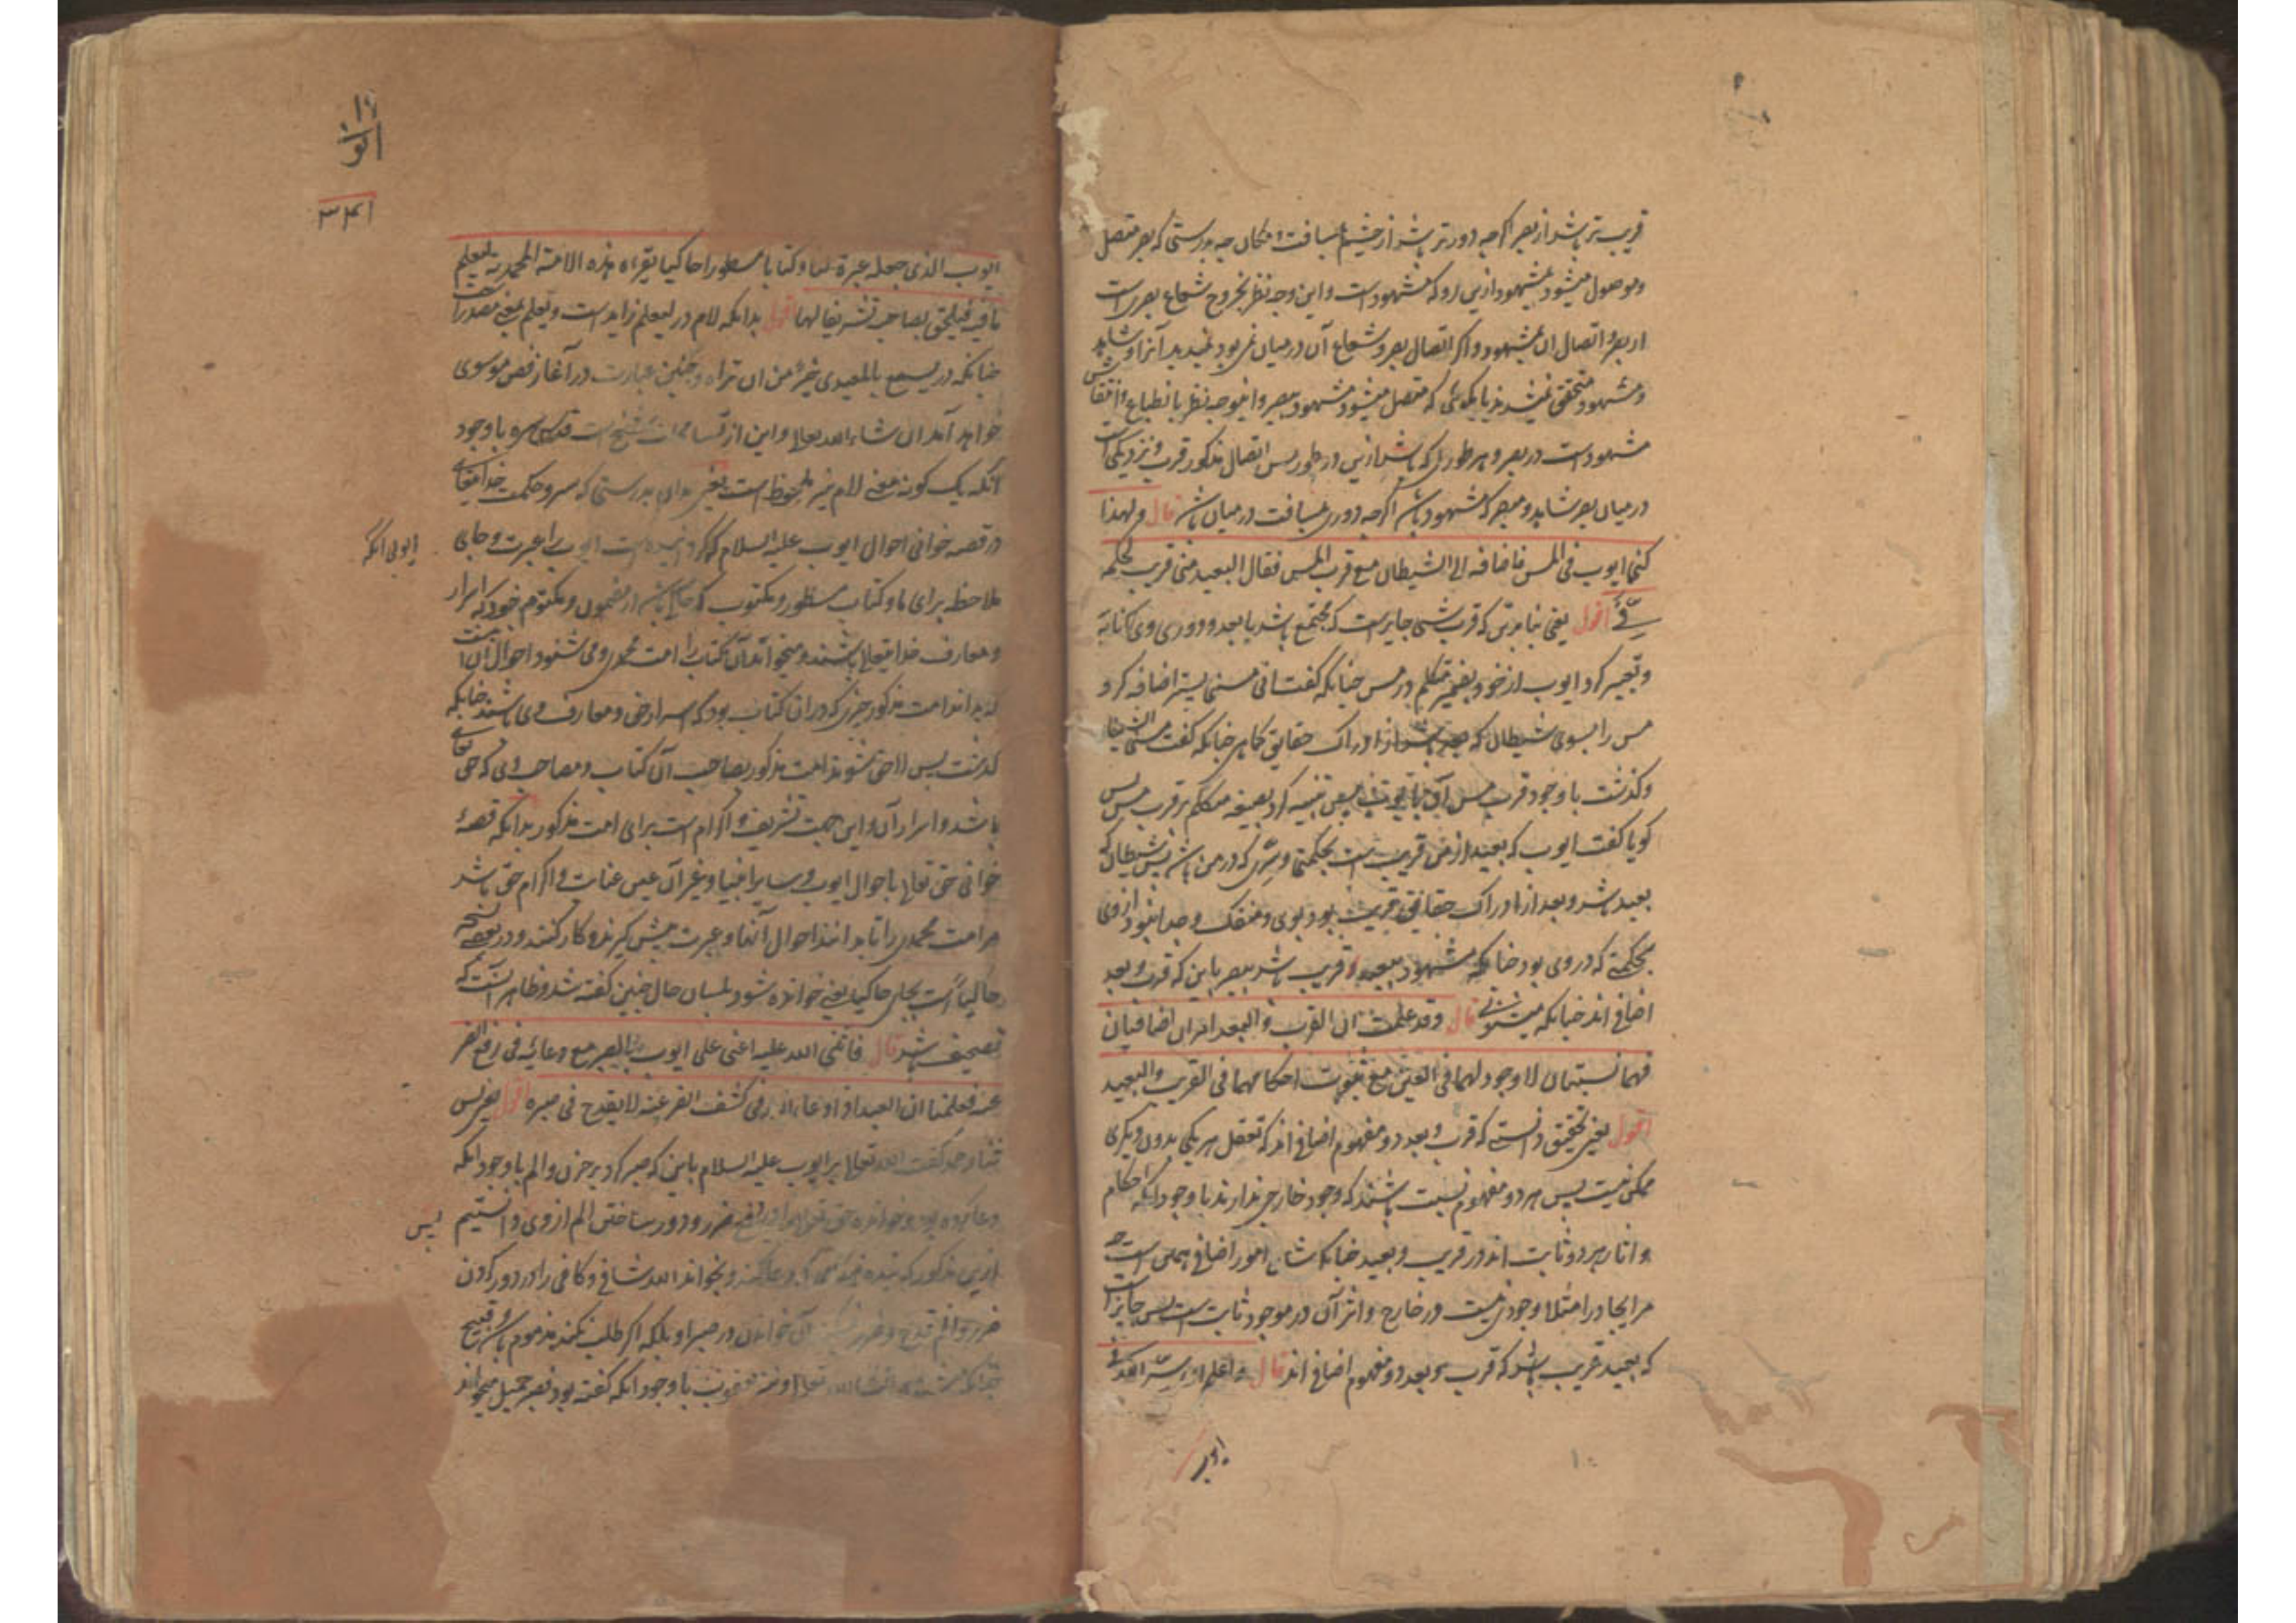 قریب تر باشد از بصر اگرچه دورتر باشد از چشم بمسافت و مکان چه بدرستی که بصر متصل
و موصول میشود بمشهود ازین رو که مشهود است و این وجه نظر بخروج شعاع بصری است
از بصر و اتصال ان بمشهود و اگر اتصال بصر و شعاع آن درمیان نمی بود نمیدید آنرا و شاهد
و مشهود متحقق نمیشدند یا بگوئی که متصل میشود مشهود ببصر و اینوجه نظر بانطباع و انتقاش
مشهود است در بصر و بهر طوری که باشد ازین دو طور پس اتصال مذکور قرب و نزدیکی است
درمیان بصر شاهد و مبصر که مشهود باشد اگرچه دوری بمسافت درمیان باشد قال و لهذا
کنی ایوب فی المس فاضافه الی الشیطان مع قرب المس فقال البعید منی قریب لحکمه
فیّ اقول یعنی بنابرین که قرب شی جایز است که مجتمع باشد با بعد و دوری وی کنایة
و تعبیر کرد ایوب از خود بضمیر متکلم در مس چنانکه گفت انی مسنی پس اضافه کرد
مس را بسوی شیطان که بعید باشد از ادراک حقایق کماهی چنانکه گفت مسنی الشیطان
و گذشت با وجود قرب مس آن بایوب یعنی تنبیه کرد بصیغه متکلم بر قرب مس پس
گویا گفت ایوب که بعید از من قریب است بحکمتی و سری که در من باشد پس شیطان که
بعید باشد و بعد از ادراک حقایق قریب بود بوی و منفک و جدا نبود از وی
بحکمتی که در وی بود چنانکه مشهود بعید قریب باشد ببصر با این که قرب و بعد
اضافی اند چنانکه میشنوی قال و قد علمت ان القرب و البعد امران اضافیان
فهما نسبتان لا وجود لهما فی العین مع ثبوت احکامهما فی القریب و البعید
اقول یعنی بتحقیق دانستی که قرب و بعد دو مفهوم اضافی اند که تعقل هر یکی بدون دیگری
ممکن نیست پس هر دو مفهوم نسبت باشند که وجود خارجی ندارند با وجود آنکه احکام
و اثار هر دو ثابت اند در قریب و بعید چنانکه شان امور اضافی همین است چه
مر ایجاد را مثلا وجودی نیست در خارج و اثر آن در موجود ثابت است پس جایز است
که بعید قریب باشد که قرب و بعد دو مفهوم اضافی اند قال و اعلم ان سرّ الله فی
ایوب
۳۴۱
ایوب الذی جعله عبرة لنا و کتابا مسطورا حاکیا تقراه هذه الامة المحمدیه لیعلم
ما فیه فیلحق بصاحبه تشریفا لها اقول بدانکه لام در لیعلم زاید است و یعلم بمعنی مصدر است
چنانکه در تسمع بالمعیدی خیر من ان تراه و چنین عبارت در آغاز فص موسوی
خواهد آمد ان شاء الله تعالی و این از مسامحات شیخ است قدس سره با وجود
آنکه یک گونه معنی لام نیز ملحوظ است یعنی بدان بدرستی که سر و حکمت خدایتعالی
در قصه خوانی احوال ایوب علیه السلام که گردانیده است ایوب را عبرت و جای
ملاحظه برای ما و کتاب مسطور و مکتوب که حاکی باشد از مضمون و مکتوم خود که اسرار
و معارف خدایتعالی باشند و میخوانند آن کتاب را امت محمدی و می شنود احوال آن امت
که بداند امت مذکور چیزی که در ان کتاب بود که اسرار حق و معارف وی باشند چنانکه
گذشت پس لاحق شوند امت مذکور بصاحب آن کتاب و مصاحب وی که حق تعالی
باشد و اسرار آن و این جهت تشریف و اکرام است برای امت مذکور بدانکه قصه
خوانی حق تعالی باحوال ایوب و سایر انبیا و غیر آن عین عنایت و اکرام حق باشد
مر امت محمدی را تا بدانند احوال آنها و عبرت پیش گیرند و کار کنند و در بعضی نسخه
حالیا است بجای حاکیا یعنی خوانده شود بلسان حال چنین گفته شد و ظاهر آنست که
تصحیف باشد قال فاثنی الله علیه اعنی علی ایوب بالصبر مع دعائه فی رفع الضر
عنه فعلمنا ان العبد اذا دعا الله فی کشف الضر عنه لا یقدح فی صبره اقول یعنی پس
ثنا و حمد گفت الله تعالی بر ایوب علیه السلام باین که صبر کرد بر حزن و الم با وجود آنکه
دعا کرده بود و خوانده حق تعالی را در رفع ضرر و دور ساختن الم از وی و دانستیم
ازین مذکور که بنده دعا کند و بخواند الله شافی و کافی را در دور کردن
ضرر و الم قدح و ضرر آن خواندن در صبر او بلکه اگر طلب نکند مذموم باشد و قبیح
تعالی و نیز یعقوب با وجود آنکه گفته بود فصبر جمیل میخواند